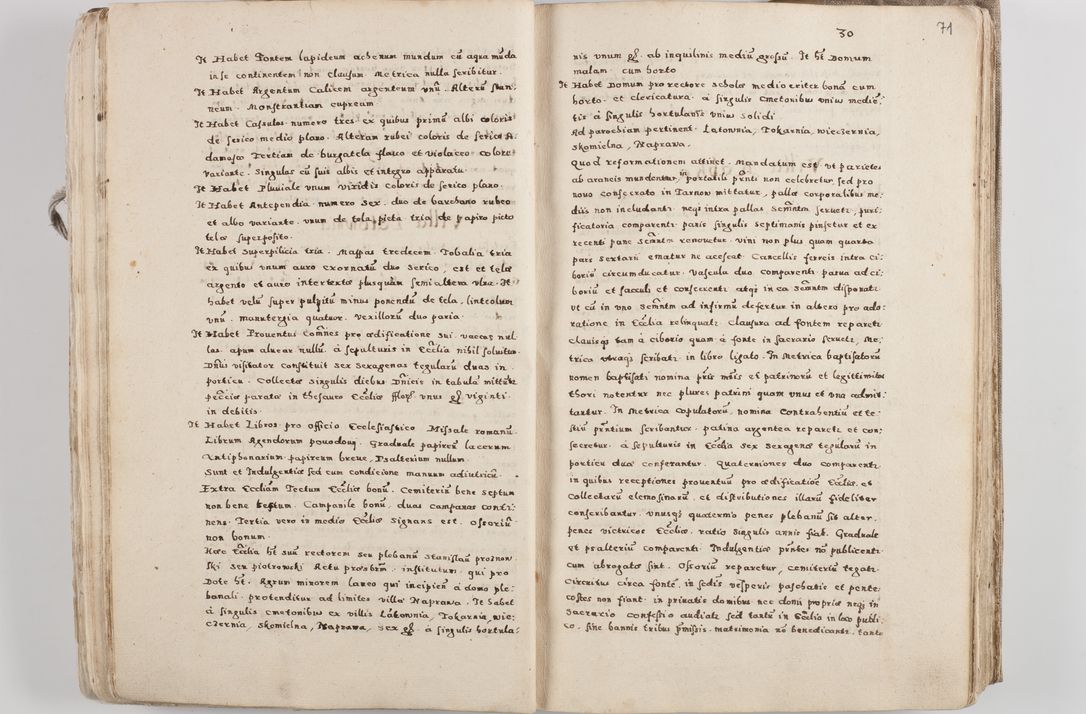 It Habet Fontem lapideum achenum mundum cũ aqua mũda
in se continentem non clausum. Metrica nulla scribitur.
It Habet Argentum Calicem argenteum vnũ. Alterũ stan-
neum. Monstrantiam cupream
It Habet Casulas numero tres ex quibus prima albi coloris
de serico medio plano. Alteram rubei coloris de serico
damasco Tertiam de burgatela flauo et violaceo colore
variante. Singulas cũ suis albis et integro apparatu.
It Habet Pluuiale vnum viridis coloris de serico plano.
It Habet Antependia numero sex. duo de barchano rubeo
et albo variante. vnum de tela picta tria de papiro picto
tela superposito.
It Habet superpilicia tria. Mappas tredecem. Tobalia tria
ex quibus vnum auro exornatũ duo serico, est et tela
argento et auro intertexta plusquam semi altera vlna. It
habet velũ super pulpitũ minus ponendũ de tela, linteolum
vnũ. manutergia quatuor. vexillorũ duo paria.
It Habet Prouentus Com̃nes pro ædificatione sui. vaccas nul-
las apum aluear nullũ. à sepulturis in Ecc̃lia nihil soluitur.
Dñus visitator constituit sex sexagenas tegularũ duas in
porticu. Collecta singulis diebus Dñicis in tabula mittẽtr
peccio parato in thesauro Ecc̃liæ fflor̃ vnus gr̃ viginti
in debitis.
It Habet Libros pro officio Ecclesiastico Missale romanũ.
Librum Agendorum pouodouj. Graduale papireũ lacerum
Antiphonarium papireum breue, Psalterium nullum.
Sunt et Indulgentiæ sed cum condicione manuum adiutricũ.
Extra Ecc̃liam Tectum Ecc̃liæ bonũ. Cemiteriũ bene septum
non bene tectum. Campanile bonũ. duas campanas conti-
nens. Tertia vero in medio Ecc̃liæ Signans est. Ossoriũ
non bonum.
Hæc Ecc̃lia ht̃ suũ rectorem seu plebanũ Stanislaũ
ski seu piotrowski Actu pr̃osbrm̃. institutum. qui pro
Dote ht̃. Agrum minorem laneo qui incipiens à domo ple-
banali. protenditur ad limites villæ Naprawa. It habet
à singulis cmetonibus ex villis Lătownia, Tokarnia, wie-
czernia, skomielna, Naprawa, sex gr̃. à singulis hortula-
30 71
nis vnum gr̃. ab inquilinis mediũ grossũ. It ht̃ Domum
malam cum horto
It Habet Domum pro rectore scholæ mediocriter bonã cum
horto. et clericatura à singulis cmetonibus vniũs medie-
tis à singulis hortulanis vniũs solidi
Ad parochiam pertinent Latownia, Tokarnia, wieczernia,
skomielna, Naprawa.
Quod reformationem attinet. Mandatum est vt parietes
ab araneis mundentur, in portatili pñti non celebretur sed pro
nouo consecrato in Tarnow mittatur, palla corporalibus me-
diis non includantr. neqʒ intra pallas Semñtm seruetr, puri-
ficatoria comparentr. panis singulis septimanis pinsetur et ex
recenti pane Semñtm renouetur. vini non plus quam quarta
pars sextarii ematur ne acescat. Cancellis ferreis intra ci-
boriũ circumducatur. Vascula duo comparentr. parua ad ci-
boriũ et sacculi et conserentr. atqʒ in ea Semñtm disponatr.
vt cũ in vno Semñtm ad infirmũ defertur in altero pro ado-
ratione in Ecc̃lia relinquatr. Clausura ad fontem reparetr
clauisqʒ tam à ciborio quam à fonte in sacrario seruetr, Me-
trica vtraqʒ scribatr. in libro ligato. In Metrica baptisatorũ
nomen baptisati nomina pr̃is mr̃is et patrinorũ et legittimitas
thori notentur nec plures patrini quam vnus et vna admit-
tantur. In Metrica copulatorũ, nomina Contrahentiũ et te-
stiũ pr̃ntium scribantur. patina argentea reparetr et con-
secretur. à sepulturis in Ecc̃lia sex sexagenæ tegularũ in
porticu duæ conferantur. Quaterniones duo comparentr.
in quibus receptiones prouentuũ pro ædificatiõe Ecc̃liæ. et
Collectarũ elemosinarũ. et distributiones illarũ fideliter
conscribantur. vnusqʒ quaternio penes plebanũ sit alter.
penes victrices Ecc̃liæ. ratio singulis annis fiat. Graduale
et psalteriũ comparentr. Indulgentiæ pr̃ntes nõ publicentr.
cum abrogatæ sint. Ossoriũ reparetur, cemiteriũ tegatr.
Circuitus circa fontẽ. in sedis vesperis paschatis et pente-
costes non fiant. in priuatis domibus nec domi propriæ neqʒ in
Sacrario confessio audiatr sed tantũ in Ecc̃lia in loco publi-
co. sine bannis tribus pr̃missis. matrimonia nõ benedicantr. tanto